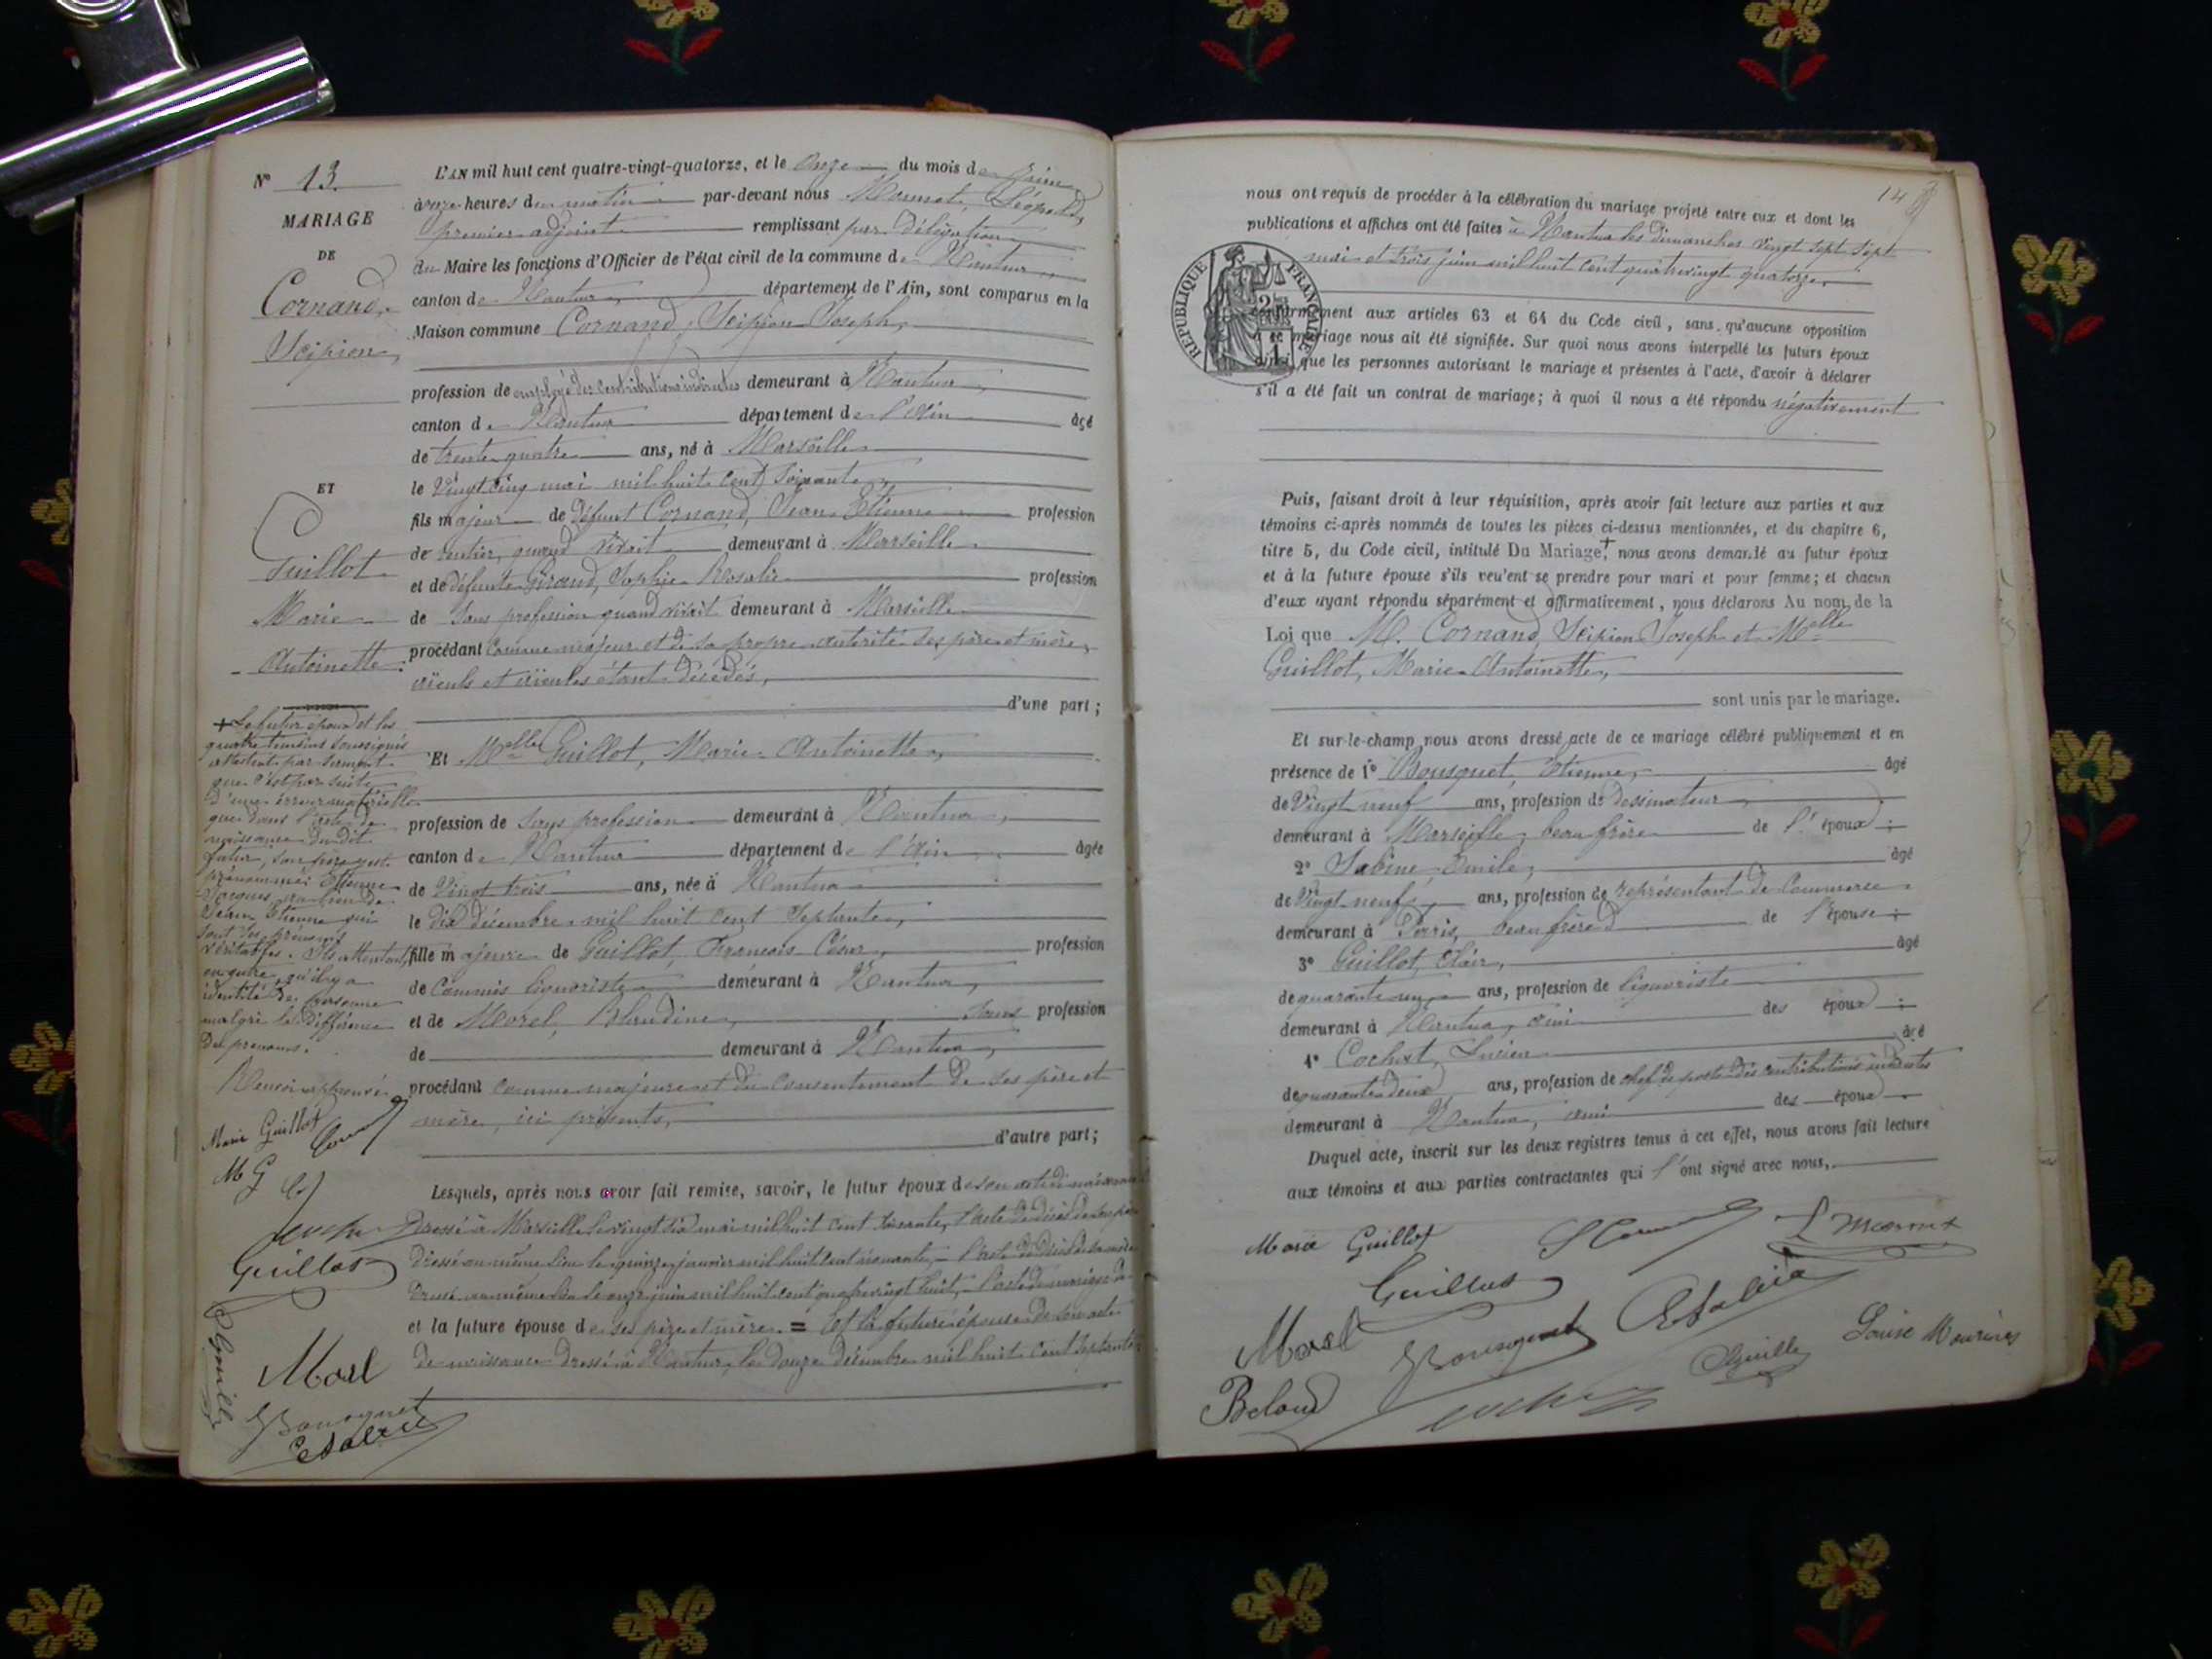 N° 13.
MARIAGE
DE
Cornand,
Scipion,
ET
Guillot
Marie
Antoinette.
+ Le futur époux et les
quatre témoins soussignés
attestent par serment
que c'est par suite
d'une erreur matérielle
que dans l'acte de
naissance du dit
futur, son père est
prénommé Etienne
Jacques au lieu de
Jean Etienne qui
sont ses prénoms
véritables. Ils attestent,
en outre, qu'il y a
identité de personne
malgré la différence
des prénoms.
Renvoi approuvé
Marie Guillot
M G
Guillot
Morel
Bousquet
L'AN mil huit cent quatre-vingt-quatorze, et le Onze du mois de Juin,
à onze heures du matin par-devant nous Léopold,
premier adjoint remplissant par délégation
du Maire les fonctions d'Officier de l'état civil de la commune de Nantua,
canton de Nantua, département de l'Ain, sont comparus en la
Maison commune Cornand, Scipion Joseph,
profession de employé des contributions indirectes demeurant à Nantua,
canton de Nantua département de l'Ain âgé
de trente quatre ans, né à Marseille
le Vingt cinq mai mil huit cent soixante,
fils majeur de défunt Cornand, Jean Etienne profession
de rentier, quand vivait demeurant à Marseille
et de défunte Giraud, Sophie Rosalie profession
de Sans profession quand vivait demeurant à Marseille
procédant comme majeur et de sa propre autorité ses père et mère,
aïeuls et aïeules étant décédés,
d'une part;
Et Melle Guillot, Marie-Antoinette,
profession de Sans profession demeurant à Nantua,
canton de Nantua département de l'Ain âgée
de Vingt trois ans, née à Nantua
le dix décembre mil huit cent septante,
fille majeure de Guillot, François César, profession
de Commis liquoriste demeurant à Nantua,
et de Morel, Blandine, sans profession
de demeurant à Nantua,
procédant comme majeure et du consentement de ses père et
mère, ici présents,
d'autre part;
Lesquels, après nous avoir fait remise, savoir, le futur époux de son acte de naissance
dressé à Marseille le vingt six mai mil huit cent soixante, l'acte de décès de son père
dressé au même lieu le quinze janvier mil huit cent, l'acte de décès de sa mère
dressé au même lieu le onze juin mil huit cent quatre vingt huit, l'acte de mariage de
et la future épouse de ses père et mère. = Et la future épouse de son acte
de naissance dressé à Nantua, le douze décembre mil huit cent septante.
14
nous ont requis de procéder à la célébration du mariage projeté entre eux et dont les
publications et affiches ont été faites à Nantua les dimanches vingt sept
mai et trois juin mil huit cent quatre vingt quatorze,
RÉPUBLIQUE FRANÇAISE
conformément aux articles 63 et 64 du Code civil, sans qu'aucune opposition
à ce mariage nous ait été signifiée. Sur quoi nous avons interpellé les futurs époux
ainsi que les personnes autorisant le mariage et présentes à l'acte, d'avoir à déclarer
s'il a été fait un contrat de mariage; à quoi il nous a été répondu négativement
Puis, faisant droit à leur réquisition, après avoir fait lecture aux parties et aux
témoins ci-après nommés de toutes les pièces ci-dessus mentionnées, et du chapitre 6,
titre 5, du Code civil, intitulé Du Mariage,+ nous avons demandé au futur époux
et à la future épouse s'ils veulent se prendre pour mari et pour femme; et chacun
d'eux ayant répondu séparément et affirmativement, nous déclarons Au nom de la
Loi que M. Cornand, Scipion Joseph et Melle
Guillot, Marie-Antoinette,
sont unis par le mariage.
Et sur-le-champ nous avons dressé acte de ce mariage célébré publiquement et en
présence de 1° Bousquet, Etienne, âgé
de Vingt neuf ans, profession de dessinateur
demeurant à Marseille, beau frère de l'époux;
2° Sabine, Emile, âgé
de Vingt-neuf, ans, profession de représentant de Commerce
demeurant à Paris, beau frère de l'épouse;
3° Guillot, Clair, âgé
de quarante un, ans, profession de liquoriste
demeurant à Nantua, ami des époux;
4° Cochet, Lucien âgé
de quarante deux ans, profession de chef de poste des contributions indirectes
demeurant à Nantua, ami des époux
Duquel acte, inscrit sur les deux registres tenus à cet effet, nous avons fait lecture
aux témoins et aux parties contractantes qui l'ont signé avec nous,
Marie Guillot
Guillot
Morel
Bousquet
Louise